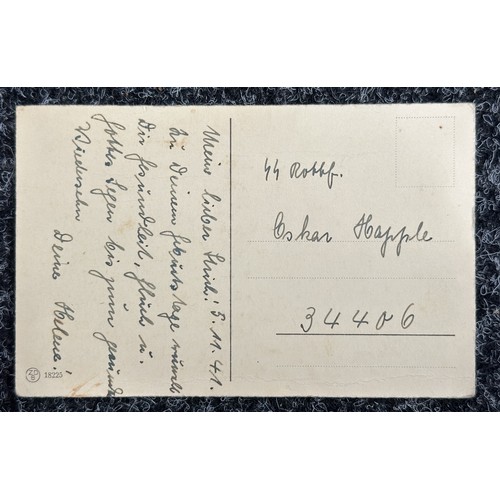 Mein lieber 5.11.41.
Zu Deinem Geburtstage wünsche
Dir Gesundheit, Glück u.
Gottes Segen bis zum gesunden
Wiedersehn Deine Helene!
SS Rottf.
Oskar Happle
34406
18225